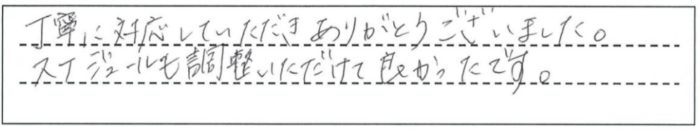 丁寧に対応していただきありがとうございました。
スケジュールも調整いただけて良かったです。